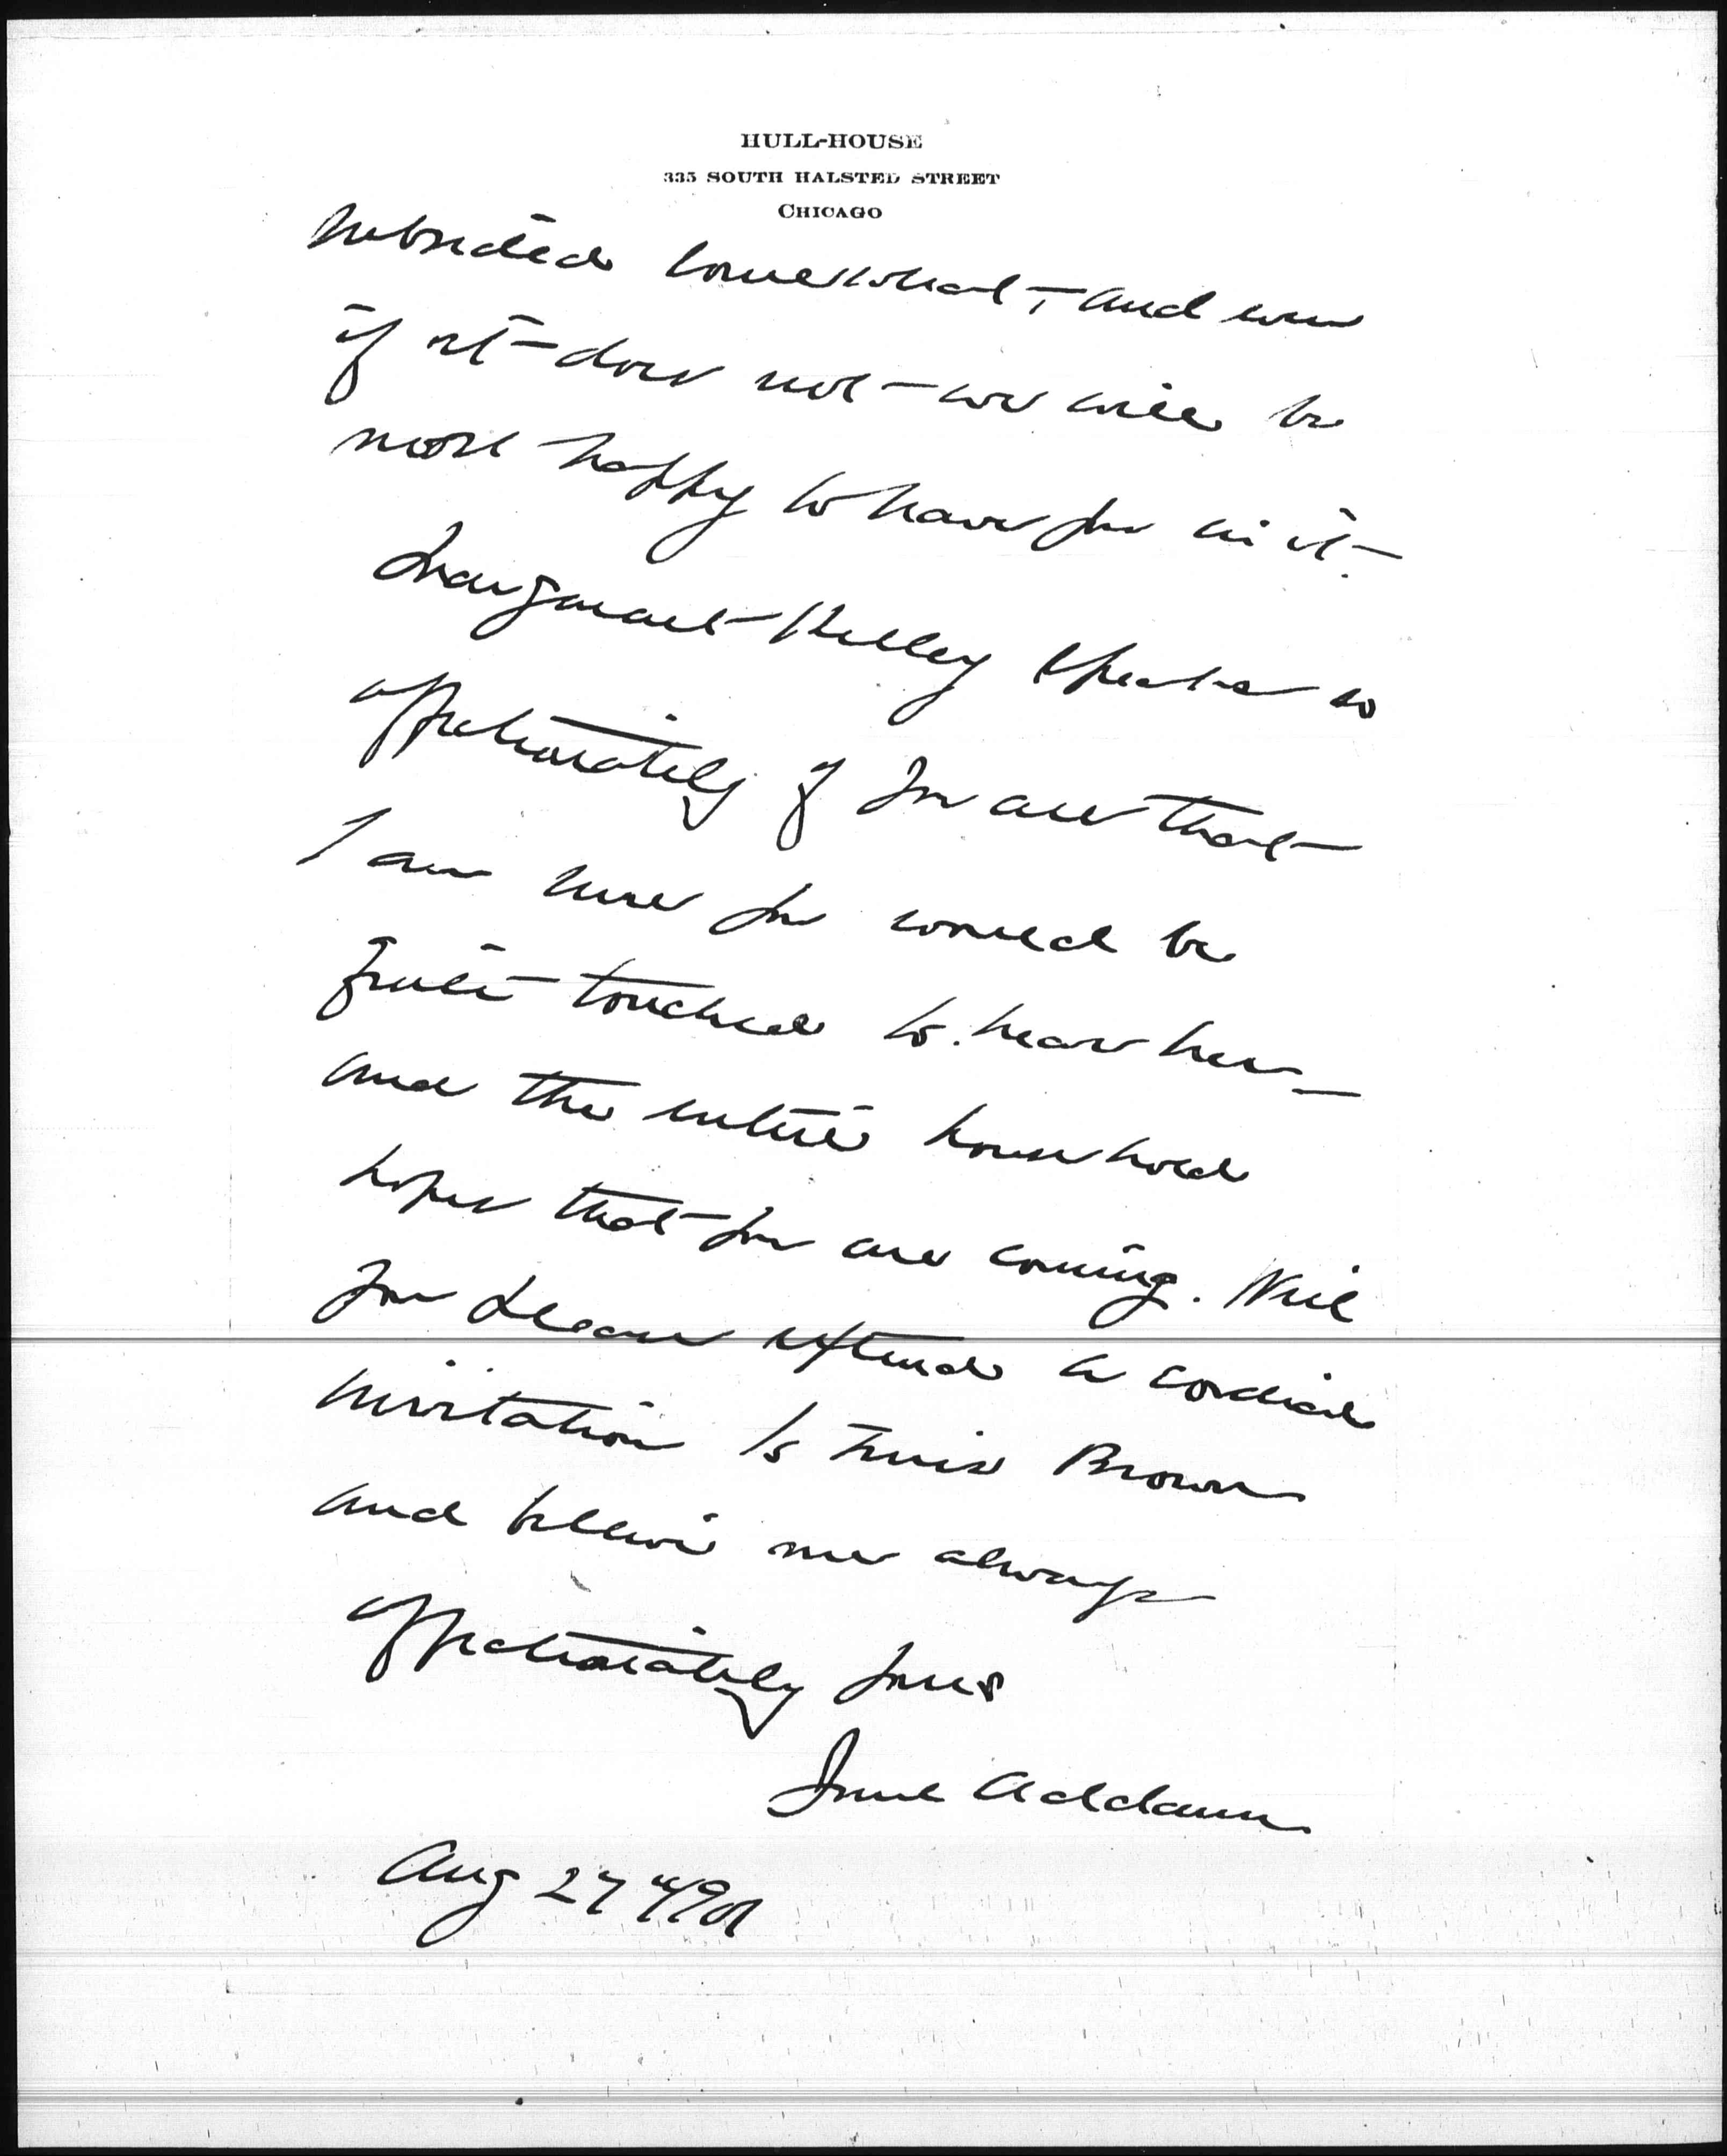 HULL-HOUSE
335 SOUTH HALSTED STREET
CHICAGO
subsided somewhat, and even
if it does not we will be
most happy to have you in it.
Margaret Kelley speaks so
affectionately of you all that
I am sure you would be
quite touched to hear her
and the entire household
hopes that you are coming. Will
you please extend a cordial
invitation to Miss Brown
and believe me always
affectionately yours
Jane Addams
Aug 27" 1901